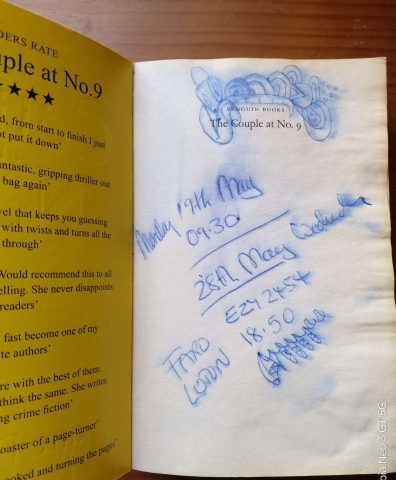 DERS RATE
uple at No.9
★★★★
d, from start to finish I just
ot put it down'
antastic, gripping thriller out
bag again'
vel that keeps you guessing
with twists and turns all the
through'
Would recommend this to all
elling. She never disappoints
readers'
fast become one of my
te authors'
re with the best of them.
think the same. She writes
ng crime fiction'
oaster of a page-turner'
ooked and turning the pages'
PENGUIN BOOKS
The Couple at No. 9
Monday 19th May
09:30
28th May Wednesday
EZY 2454
18.50
FARO
LUTON